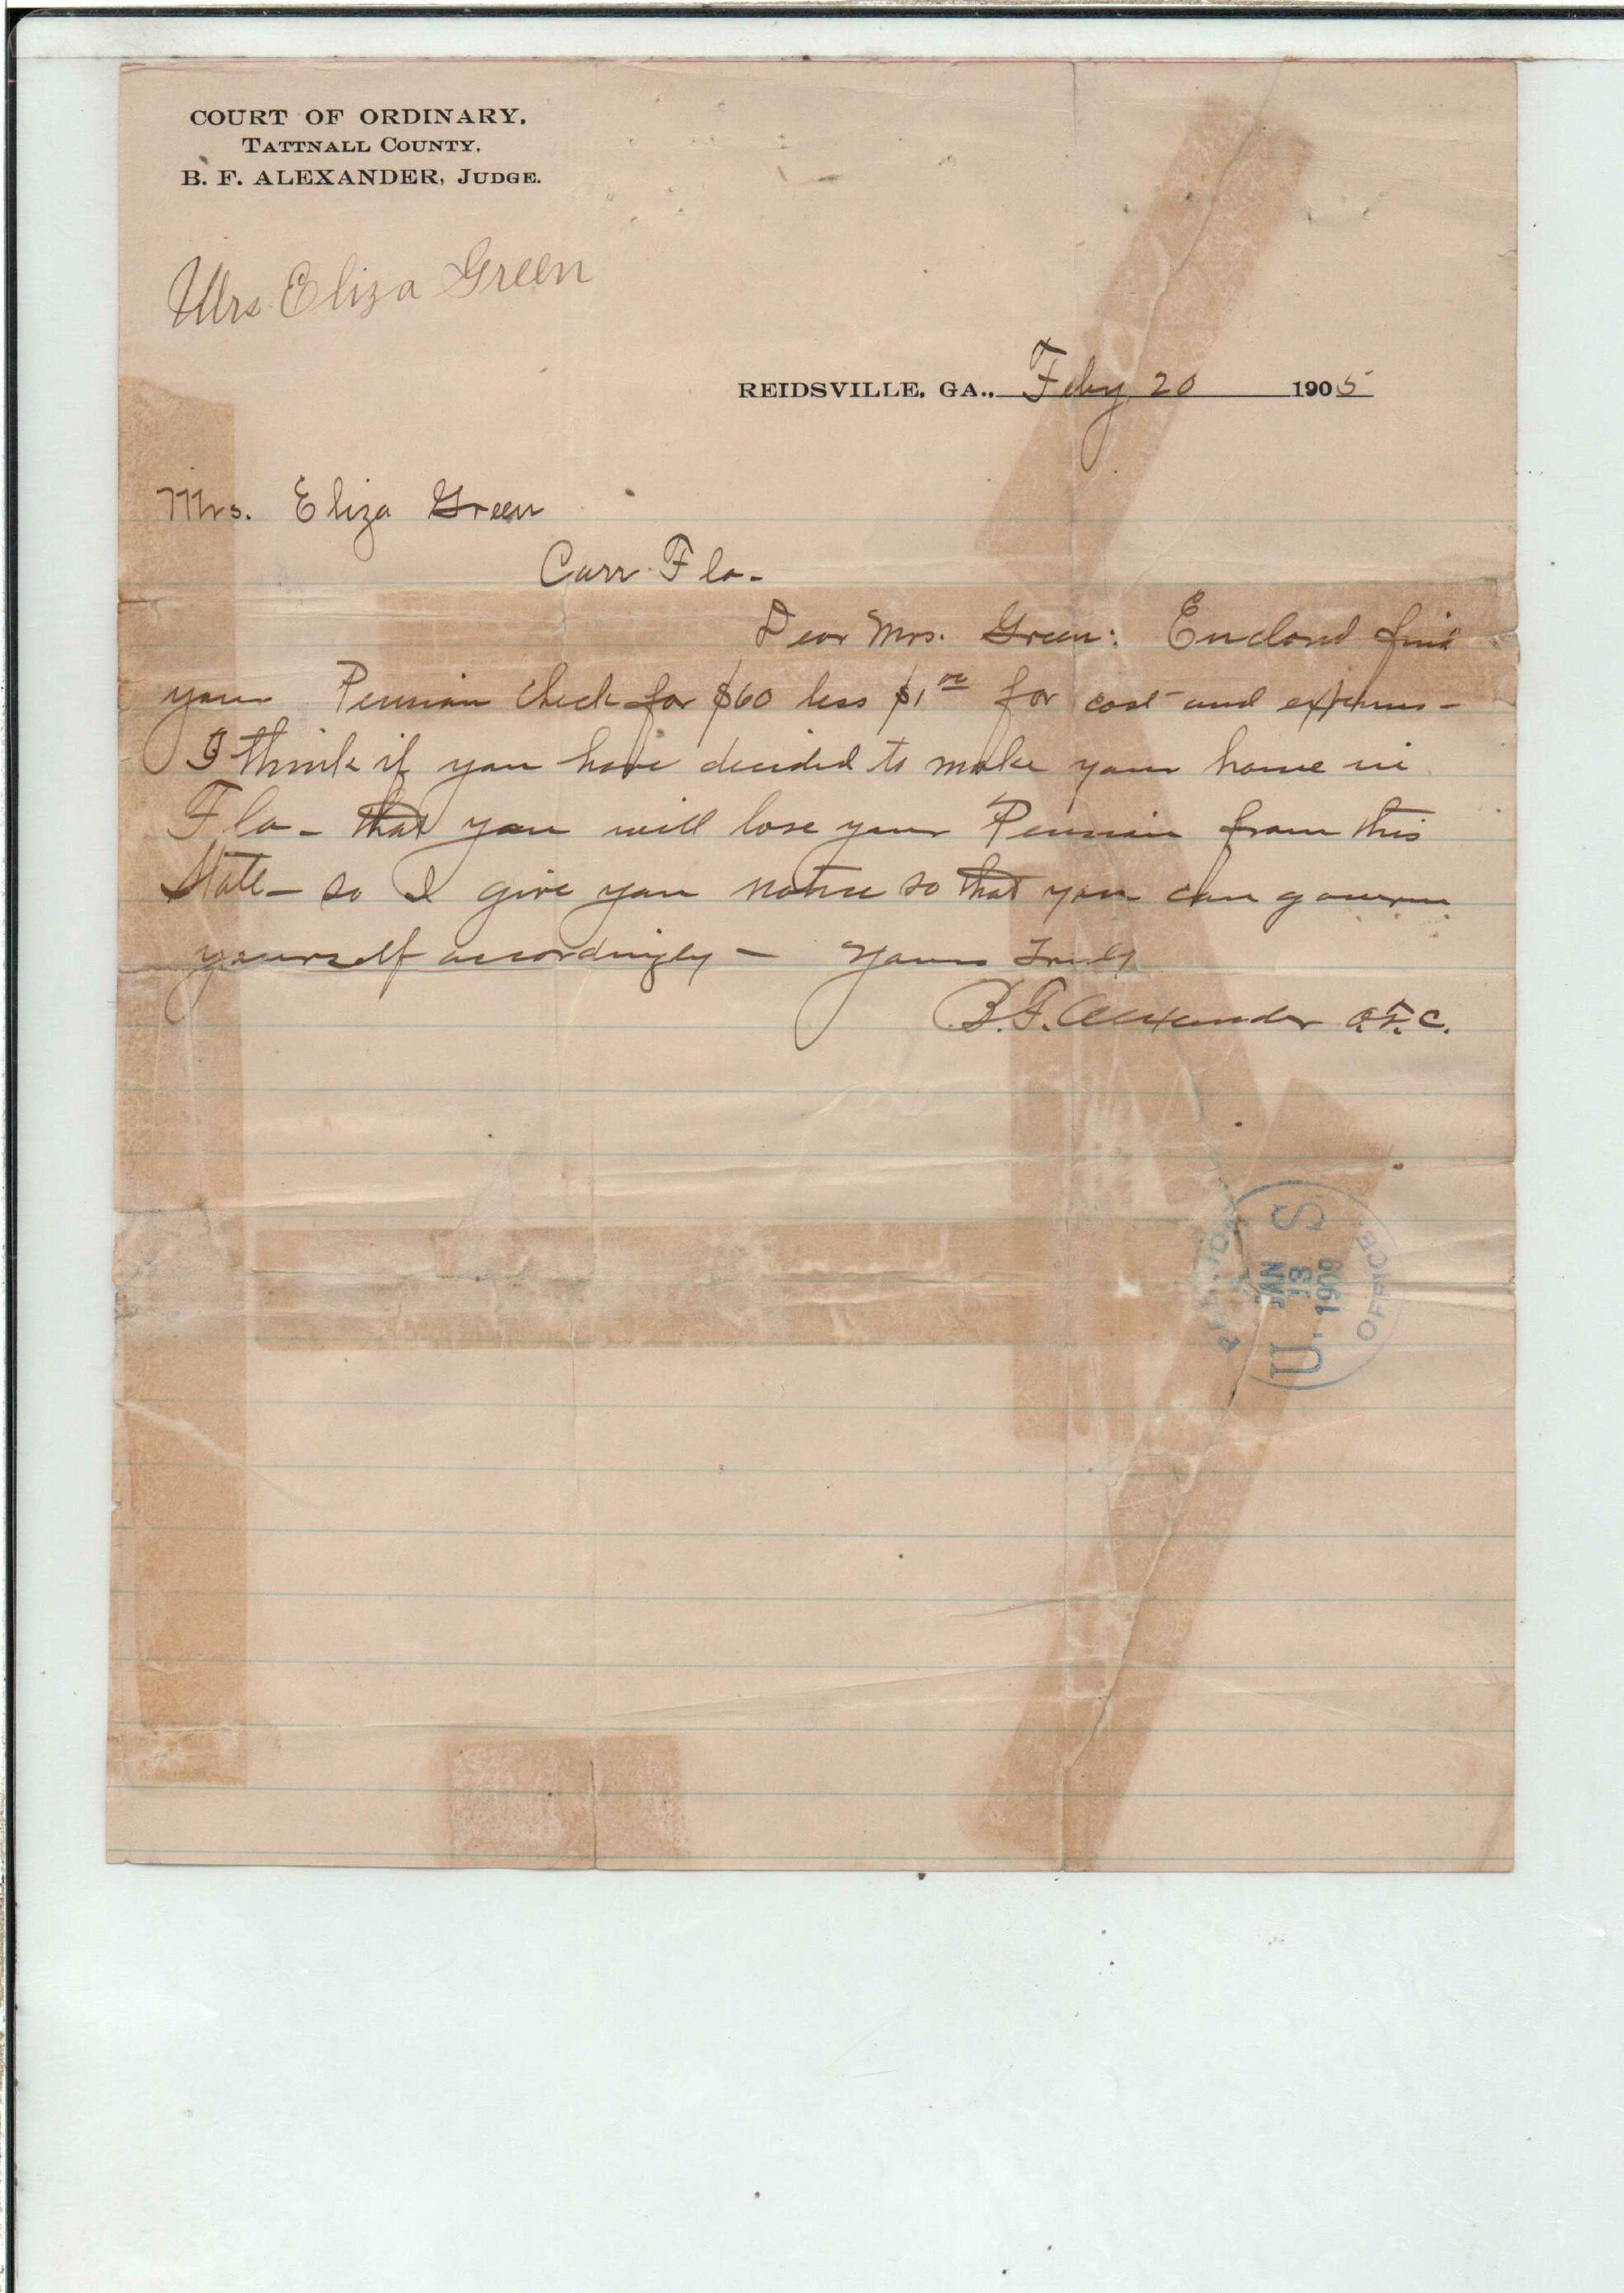 COURT OF ORDINARY,
TATTNALL COUNTY.
B. F. ALEXANDER, JUDGE.
Mrs. Eliza Green
REIDSVILLE, GA., Feby 20 1905
Mrs. Eliza Green
Carr Fla-
Dear Mrs. Green: Enclosed find
your Pension Check for $60 less $1 00 for cost and expenses-
I think if you have decided to make your home in
Fla- that you will lose your Pension from this
State- so I give you notice so that you can govern
yourself accordingly- Yours Truly
B. F. Alexander O.T.C.
U. S.
JAN
13
1909
OFFICE